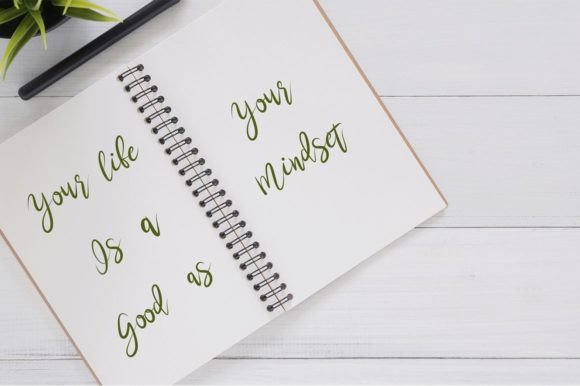 Your life
Is a
Good as
Your
Mindset